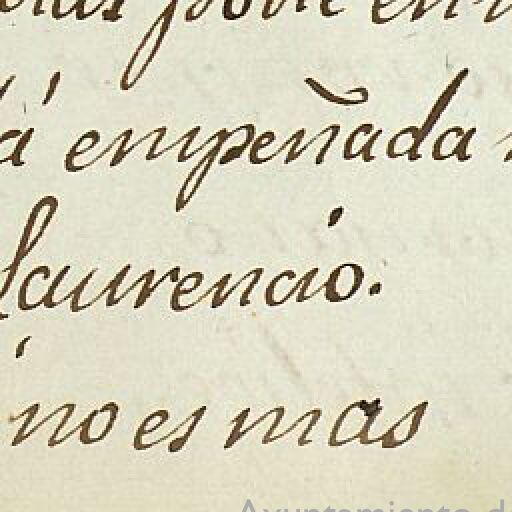 á empeñada
Laurencio.
no es mas
Ayuntamiento d